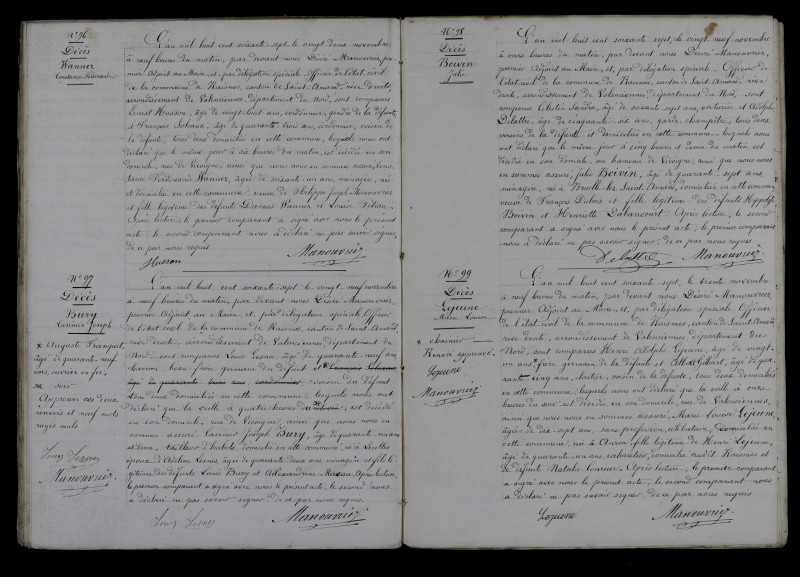 N° 96
Décès
Wanner
L'an mil huit cent soixante sept, le vingt deux novembre
à neuf heures du matin, par devant nous Désiré Manouvrier, pre-
mier Adjoint au Maire, et par délégation spéciale, Officier de l'état civil
de la commune de Raismes, canton de Saint-Amand, rive Droite,
arrondissement de Valenciennes, département du Nord, sont comparus
Ernest Husson, âgé de vingt huit ans, cordonnier, gendre de la défunte,
et François âgé de quarante trois ans, cordonnier, cousin de
la défunte, tous deux domiciliés en cette commune, lesquels nous ont
déclaré que le même jour à six heures du matin, est décédée en son
domicile, rue de Vicogne, ainsi que nous nous en sommes assuré,
Wanner, âgée de soixante un ans, ménagère, née
et domiciliée en cette commune, veuve de Philippe Joseph Manouvrier
et fille légitime des défunts Wanner et Louise
Après lecture, le premier comparant a signé avec nous le présent
acte, le second comparant nous a déclaré ne pas savoir signer,
de ce par nous requis
Husson Manouvriez
N° 97
Décès
Bury
Casimir Joseph
* Auguste
âgé de quarante neuf
ans, ouvrier en fer
* soir
Approuvé ces deux
renvois et neuf mots
rayés nuls
Louis Manouvriez
L'an mil huit cent soixante sept, le vingt neuf novembre
à neuf heures du matin, par devant nous Désiré Manouvrier,
premier Adjoint au Maire, et par délégation spéciale Officier
de l'état civil de la commune de Raismes, canton de Saint-Amand,
rive droite, arrondissement de Valenciennes, département du
Nord, sont comparus Louis âgé de quarante neuf ans,
charron, beau frère germain du défunt et
cousin du défunt
tous deux domiciliés en cette commune, lesquels nous ont
déclaré que la veille à quatre heures du est décédé
en son domicile, rue de Vicogne, ainsi que nous nous en
sommes assuré Casimir Joseph Bury, âgé de quarante
ans, tailleur d'habits, domicilié en cette commune, né à
époux de âgée de quarante deux ans, ménagère et fils lé-
gitime des défunts Louis Bury et Alexandrine Après lecture,
le premier comparant a signé avec nous le présent acte, le second nous
a déclaré ne pas savoir signer, de ce par nous requis.
Louis Manouvriez
N° 98
Décès
Boivin
Julie
L'an mil huit cent soixante sept, le vingt neuf novembre
à onze heures du matin, par devant nous Désiré Manouvrier,
premier Adjoint au Maire, et par délégation spéciale, Officier de
l'état civil de la commune de Raismes, canton de Saint-Amand, rive
droite, arrondissement de Valenciennes, département du Nord, sont
comparus Célestin âgé de soixante sept ans, et Adolphe
Delattre, âgé de cinquante six ans, garde champêtre, tous deux
voisins de la défunte et domiciliés en cette commune, lesquels nous
ont déclaré que le même jour à cinq heures et demie du matin, est
décédée en son domicile, au hameau de Vicogne, ainsi que nous nous
en sommes assuré, Julie Boivin, âgée de quarante sept ans,
ménagère, née à Bruille-lez-Saint-Amand, domiciliée en cette commune
veuve de François Dubois et fille légitime des défunts Hippolyte
Boivin et Henriette Après lecture, le second
comparant a signé avec nous le présent acte, le premier comparant
nous a déclaré ne pas savoir signer, de ce par nous requis
Delattre Manouvriez
N° 99
Décès
Lejeune
Marie Louise
*
Renvoi approuvé.
Lejeune
Manouvriez
L'an mil huit cent soixante sept, le trente novembre
à neuf heures du matin, par devant nous Désiré Manouvrier
premier Adjoint au Maire, et, par délégation spéciale Officier
de l'état civil de la commune de Raismes, canton de Saint-Amand
rive droite, arrondissement de Valenciennes, département du
Nord, sont comparus Henri Adolphe Lejeune, âgé de vingt
un ans, frère germain de la défunte, et âgé de qua-
rante cinq ans, voisin de la défunte, tous deux domiciliés
en cette commune, lesquels nous ont déclaré que la veille à onze
heures du soir est décédée en son domicile, rue de Valenciennes,
ainsi que nous nous en sommes assuré, Marie Louise Lejeune,
âgée de dix sept ans, sans profession, célibataire, domiciliée en
cette commune, née à Anzin, fille légitime de Henri Lejeune,
âgé de quarante ans, cabaretier, domicilié audit Raismes et
de défunte Natalie Après lecture, le premier comparant
a signé avec nous le présent acte, le second comparant nous
a déclaré ne pas savoir signer de ce par nous requis
Lejeune Manouvriez